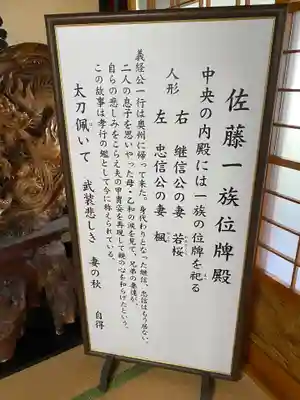 佐藤一族位牌殿
中央の内殿には一族の位牌を祀る
人形 右 継信公の妻 若桜
左 忠信公の妻 楓
義経公一行は奥州に帰って来た。身代わりとなった継信、忠信はもう居ない。
二人の息子を思いやった母・乙和の涙を見て、兄弟の妻達が、
自らの悲しみをこらえ夫の甲冑姿を再現して親の心を和らげたという。
この故事は孝行の鑑として今に称えられている。
太刀佩いて 武装悲しき 妻の秋
自得